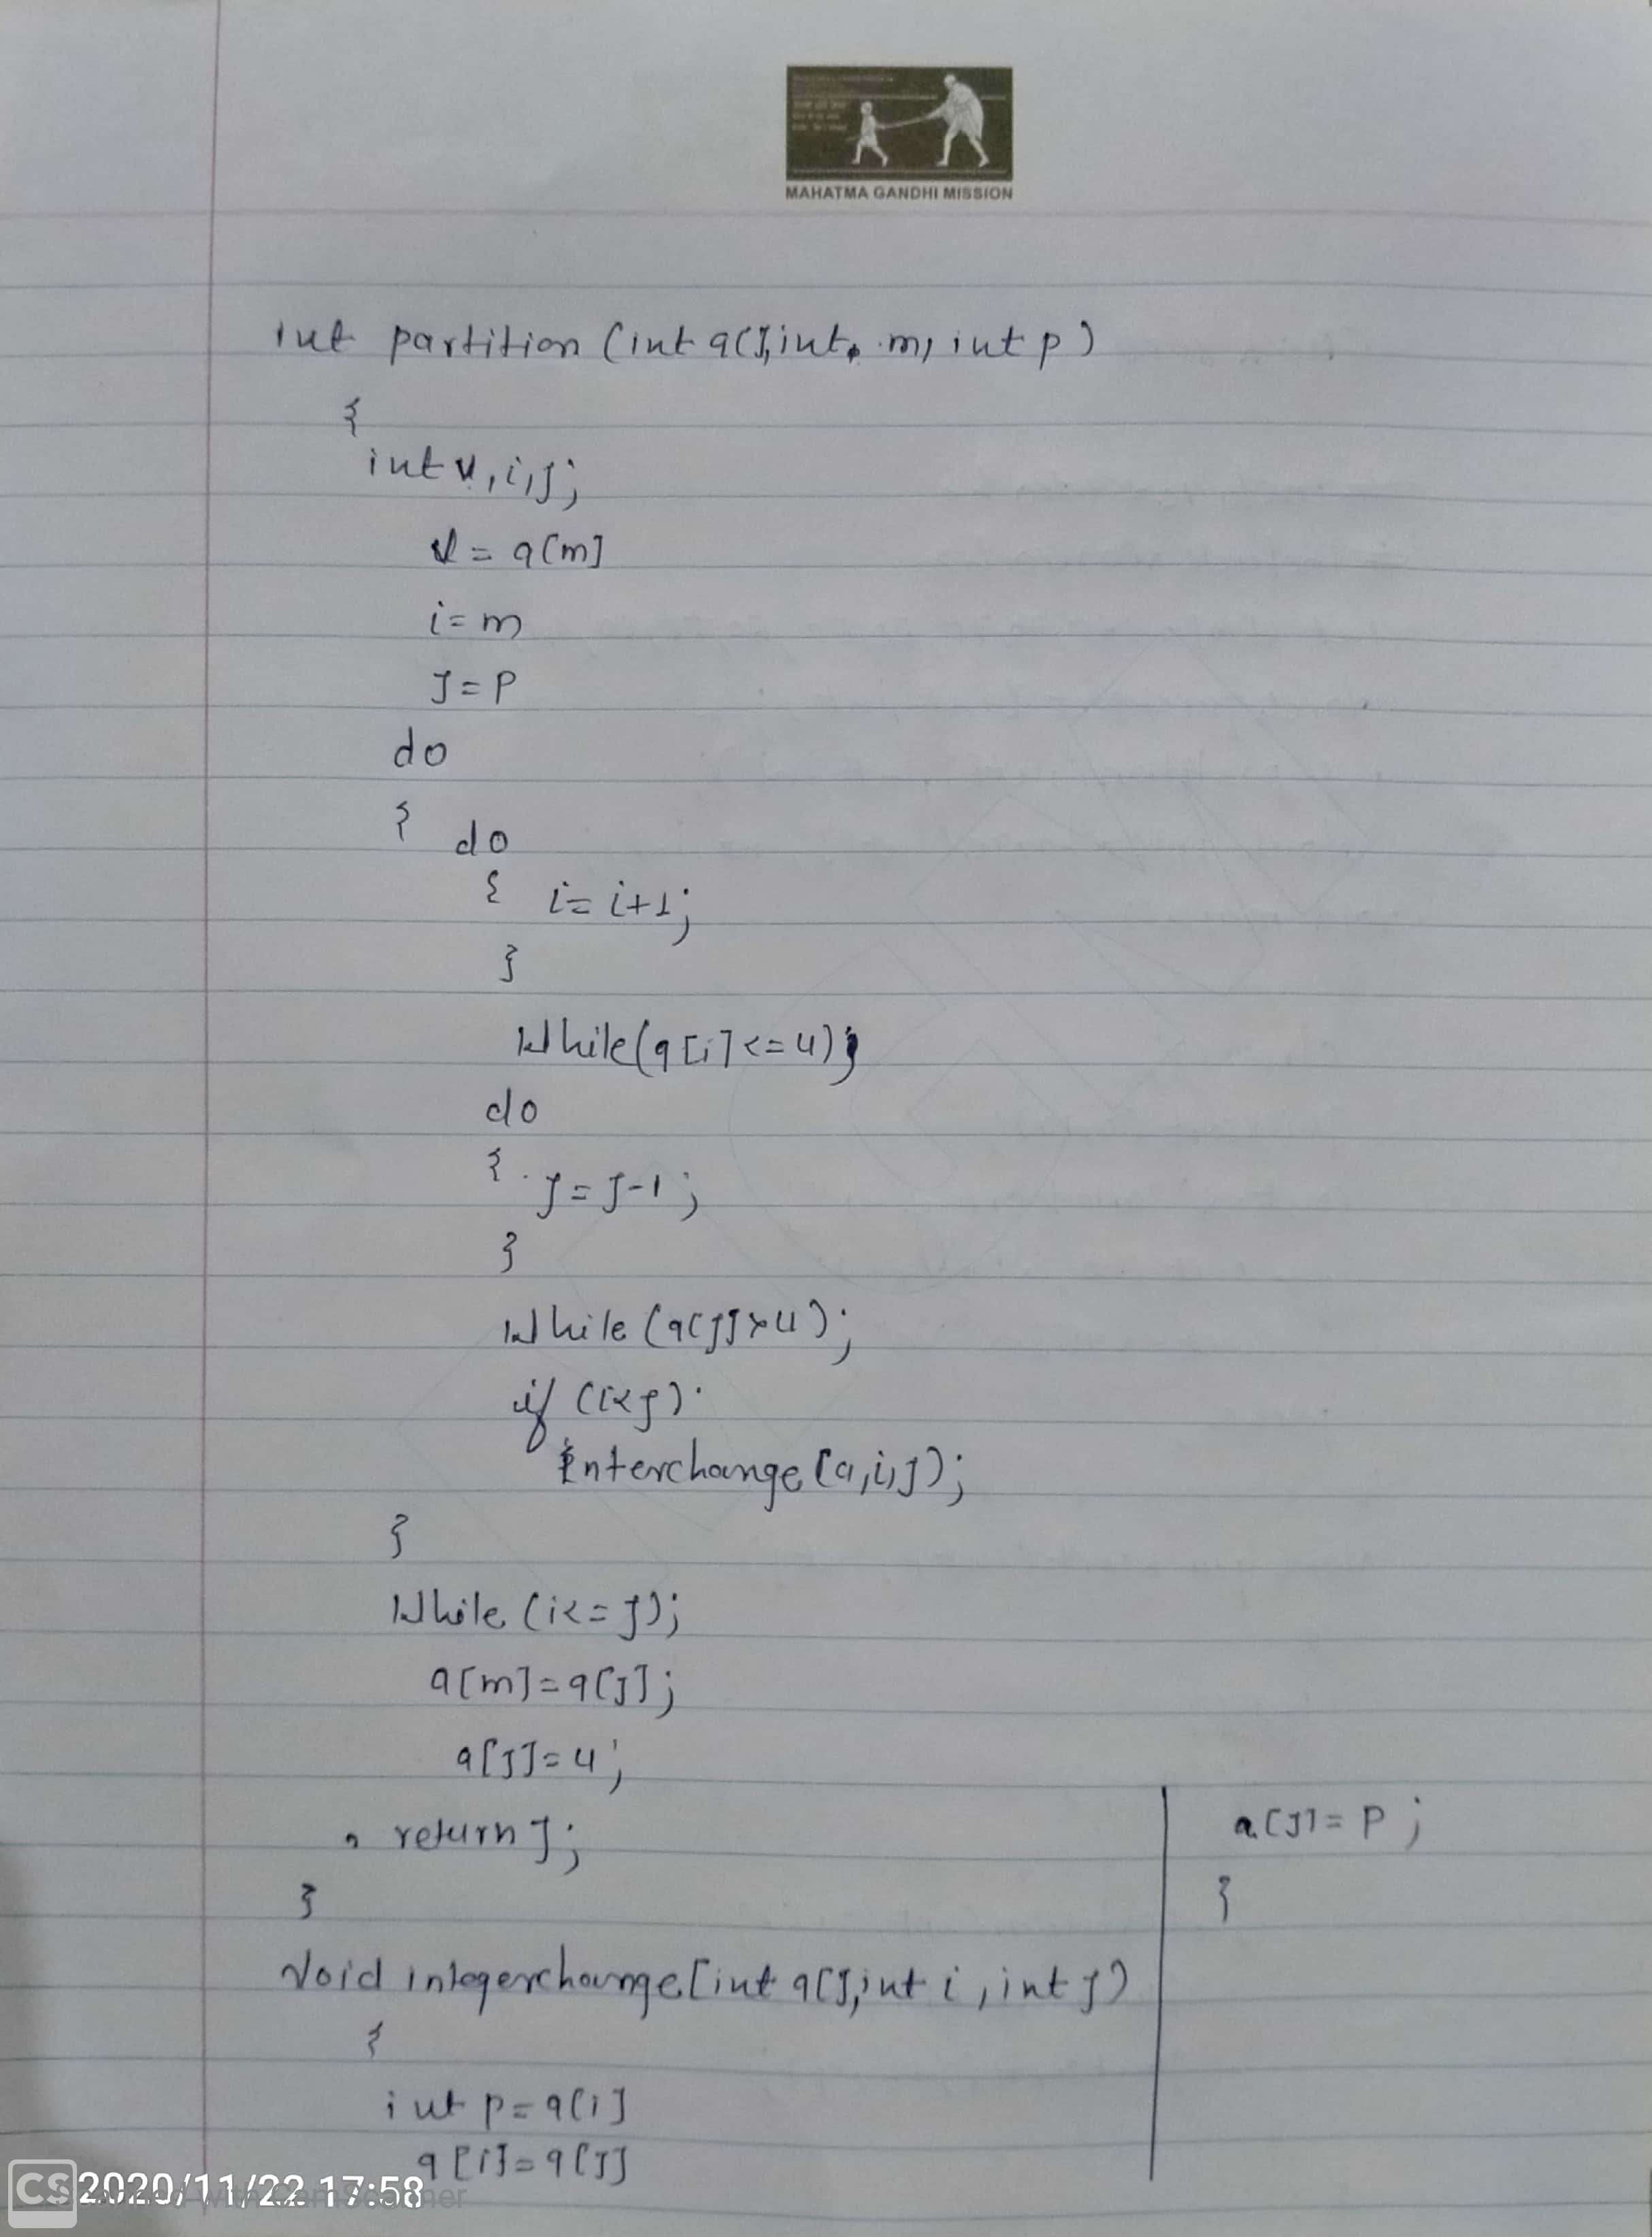 MAHATMA GANDHI MISSION
int partition (int a[], int m, int p)
{
int v, i, j;
v = a[m]
i = m
J = P
do
{ do
{ i = i+1;
}
While(a[i] <= u);
do
{ j = j-1;
}
While (a[j] > u);
if (i<j)
interchange (a,i,j);
}
While (i<=j);
a[m] = a[j];
a[j] = u;
return j;
}
Void integerchange [int a[], int i, int j)
{
int p = a[i]
a[i] = a[j]
a[j] = p;
}
CS 2020/11/22 17:58